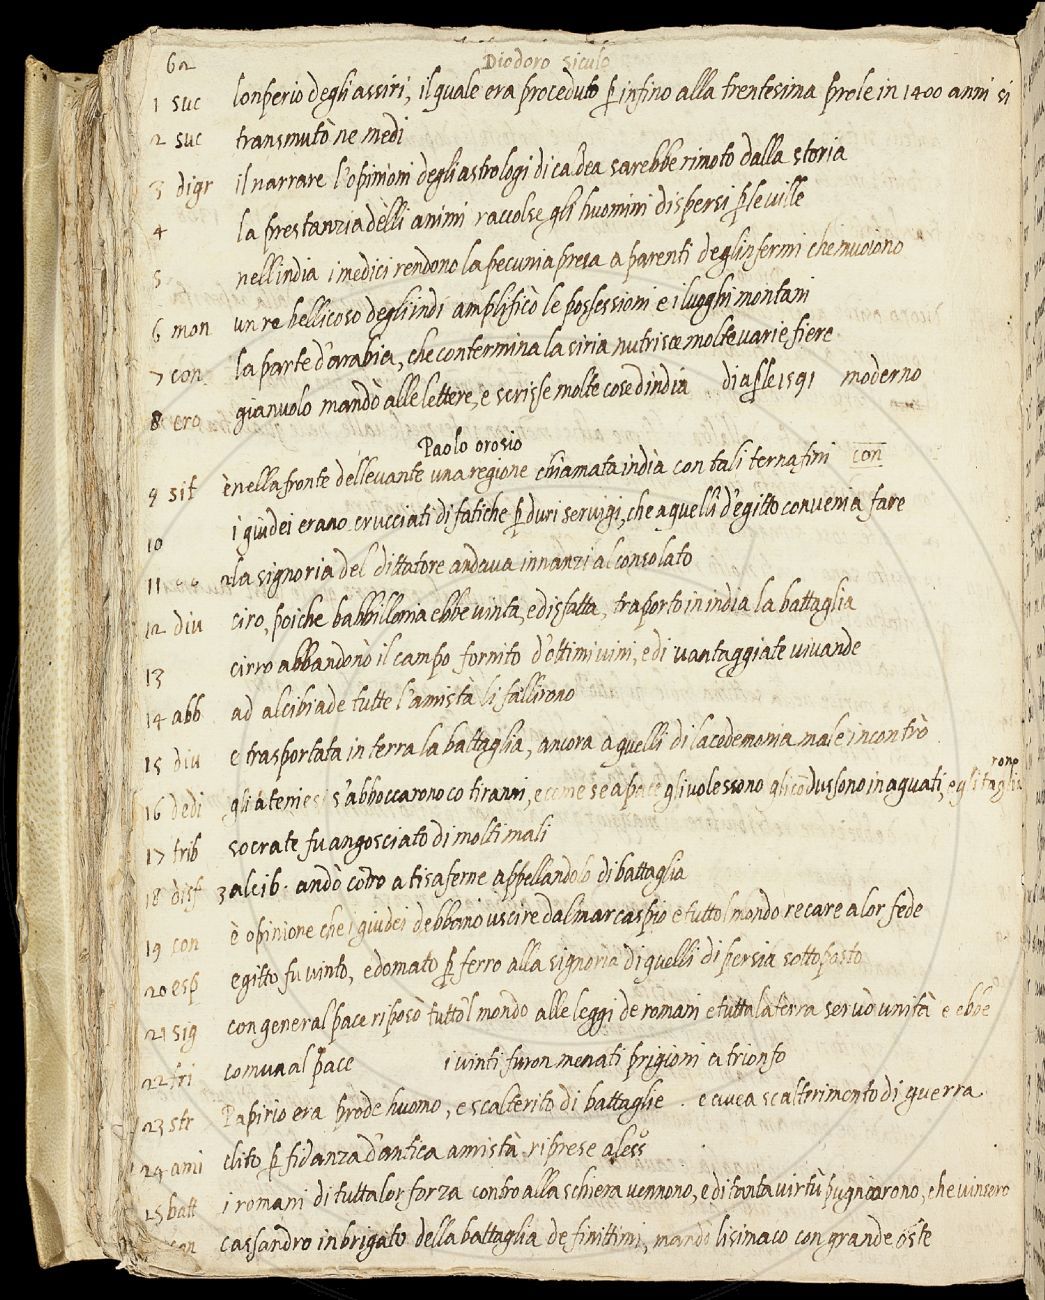 62 Diodoro siculo
1 suc lonperio degli assiri, il quale era proceduto p̄ infino alla trentesima prole in 1400 anni si
2 suc transmutò ne medi
3 digr il narrare l'opinioni degli astrologi di caldea sarebbe rimoto dalla storia
4 la prestanzia delli animi raccolse gli huomini dispersi p̄ le ville
5 nell india i medici rendono la pecunia presa a parenti degl infermi che muoiono
6 mon un re bellicoso degli indi amplificò le possessioni e i luoghi montani
7 con la parte d'arabia, che contermina la siria nutrisce molte varie fiere
8 ero gianuolo mandò alle lettere, e scrisse molte cose d india 1591 moderno
Paolo orosio
9 sit è nella fronte dellevante una regione chiamata india con tali ternafini con
10 i giudei erano crucciati di fatiche p̄ duri servigi, che a quelli d'egitto convenia fare
11 la signoria del dittatore andava innanzi al consolato
12 diu ciro, poiche babbillonia ebbe vinta, e disfatta, traporto in india la battaglia
13 cirro abbandonò il campo fornito d'ottimi vini, e di vantaggiate vivande
14 abb ad alcibiade tutte l'amistà li fallirono
15 diu e trasportata in terra la battaglia, ancora a quelli di lacedemonia male incontrò
16 dedi gli ateniesi s'abboccarono co tiranni, e come se a pace gli volessono gli cōdussono in aguati, e gli tagliarono
17 trib socrate fu angosciato di molti mali
18 disf 3 alcib. andò cōtro a tisaferne appellandolo di battaglia
19 con è opinione che i giudei debbano uscire dal mar caspio e tutto'l mondo recare a lor fede
20 esp egitto fu vinto, e domato p̄ ferro alla signoria di quelli di persia sottoposto
21 sig con general pace riposò tutto'l mondo alle leggi de romani e tutta la terra servò unità e ebbe
22 tri comunal pace i vinti furon menati prigioni a trionfo
23 str Papirio era prode huomo, e scalterito di battaglie. e avea scalterimento di guerra
24 ami clito p̄ fidanza d'antica amistà riprese aless.o
25 batt i romani di tutta lor forza contro alla schiera vennono, e di tanta virtù pugnarono, che vinsero
con cassandro inbrigato della battaglia de finittimi, mandò lisimaco con grande oste